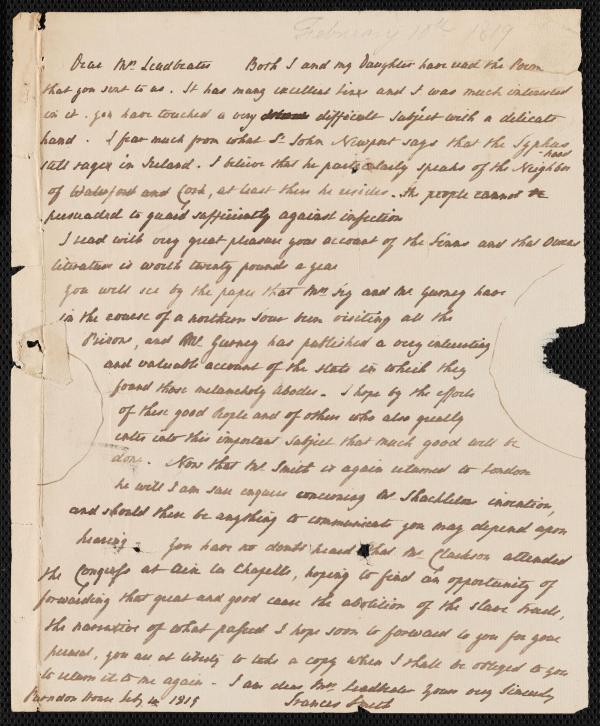 February 10th 1819
Dear Mrs Leadbeater Both I and my Daughter have read the Poem
that you sent to us. It has many excellent lines and I was much interested
in it. you have touched a very difficult subject with a delicate
hand. I fear much from what Sr John Newport says that the Typhus
still rages in Ireland. I believe that he particularly speaks of the Neighbor
-hood
of Waterford and Cork, at least there he resides. the people cannot be
persuaded to guard sufficiently against infection
I read with very great pleasure your account of the and that
literature is worth twenty pounds a year
you will see by the paper that Mrs Fry and Mr Gurney have
in the course of a northern Tour been visiting all the
Prisons, and Mr Gurney has published a very interesting
and valuable account of the state in which they
found those melancholy abodes. I hope by the efforts
of these good People and of others who also greatly
enter into this important subject that much good will be
done. Now that Mr Smith is again returned to London
he will I am sure enquire concerning Mr Shackleton invention,
and should there be anything to communicate you may depend upon
hearing. You have no doubt heard that Mr Clarkson attended
the Congress at Aix la Chapelle, hoping to find an opportunity of
forwarding that great and good cause the abolition of the slave trade,
the narrative of what passed I hope soon to forward to you for your
perusal, you are at liberty to take a copy when I shall be obliged to you
to return it to me again. I am dear Mrs Leadbeater yours very sincerely
Parndon House 1819 Frances Smith